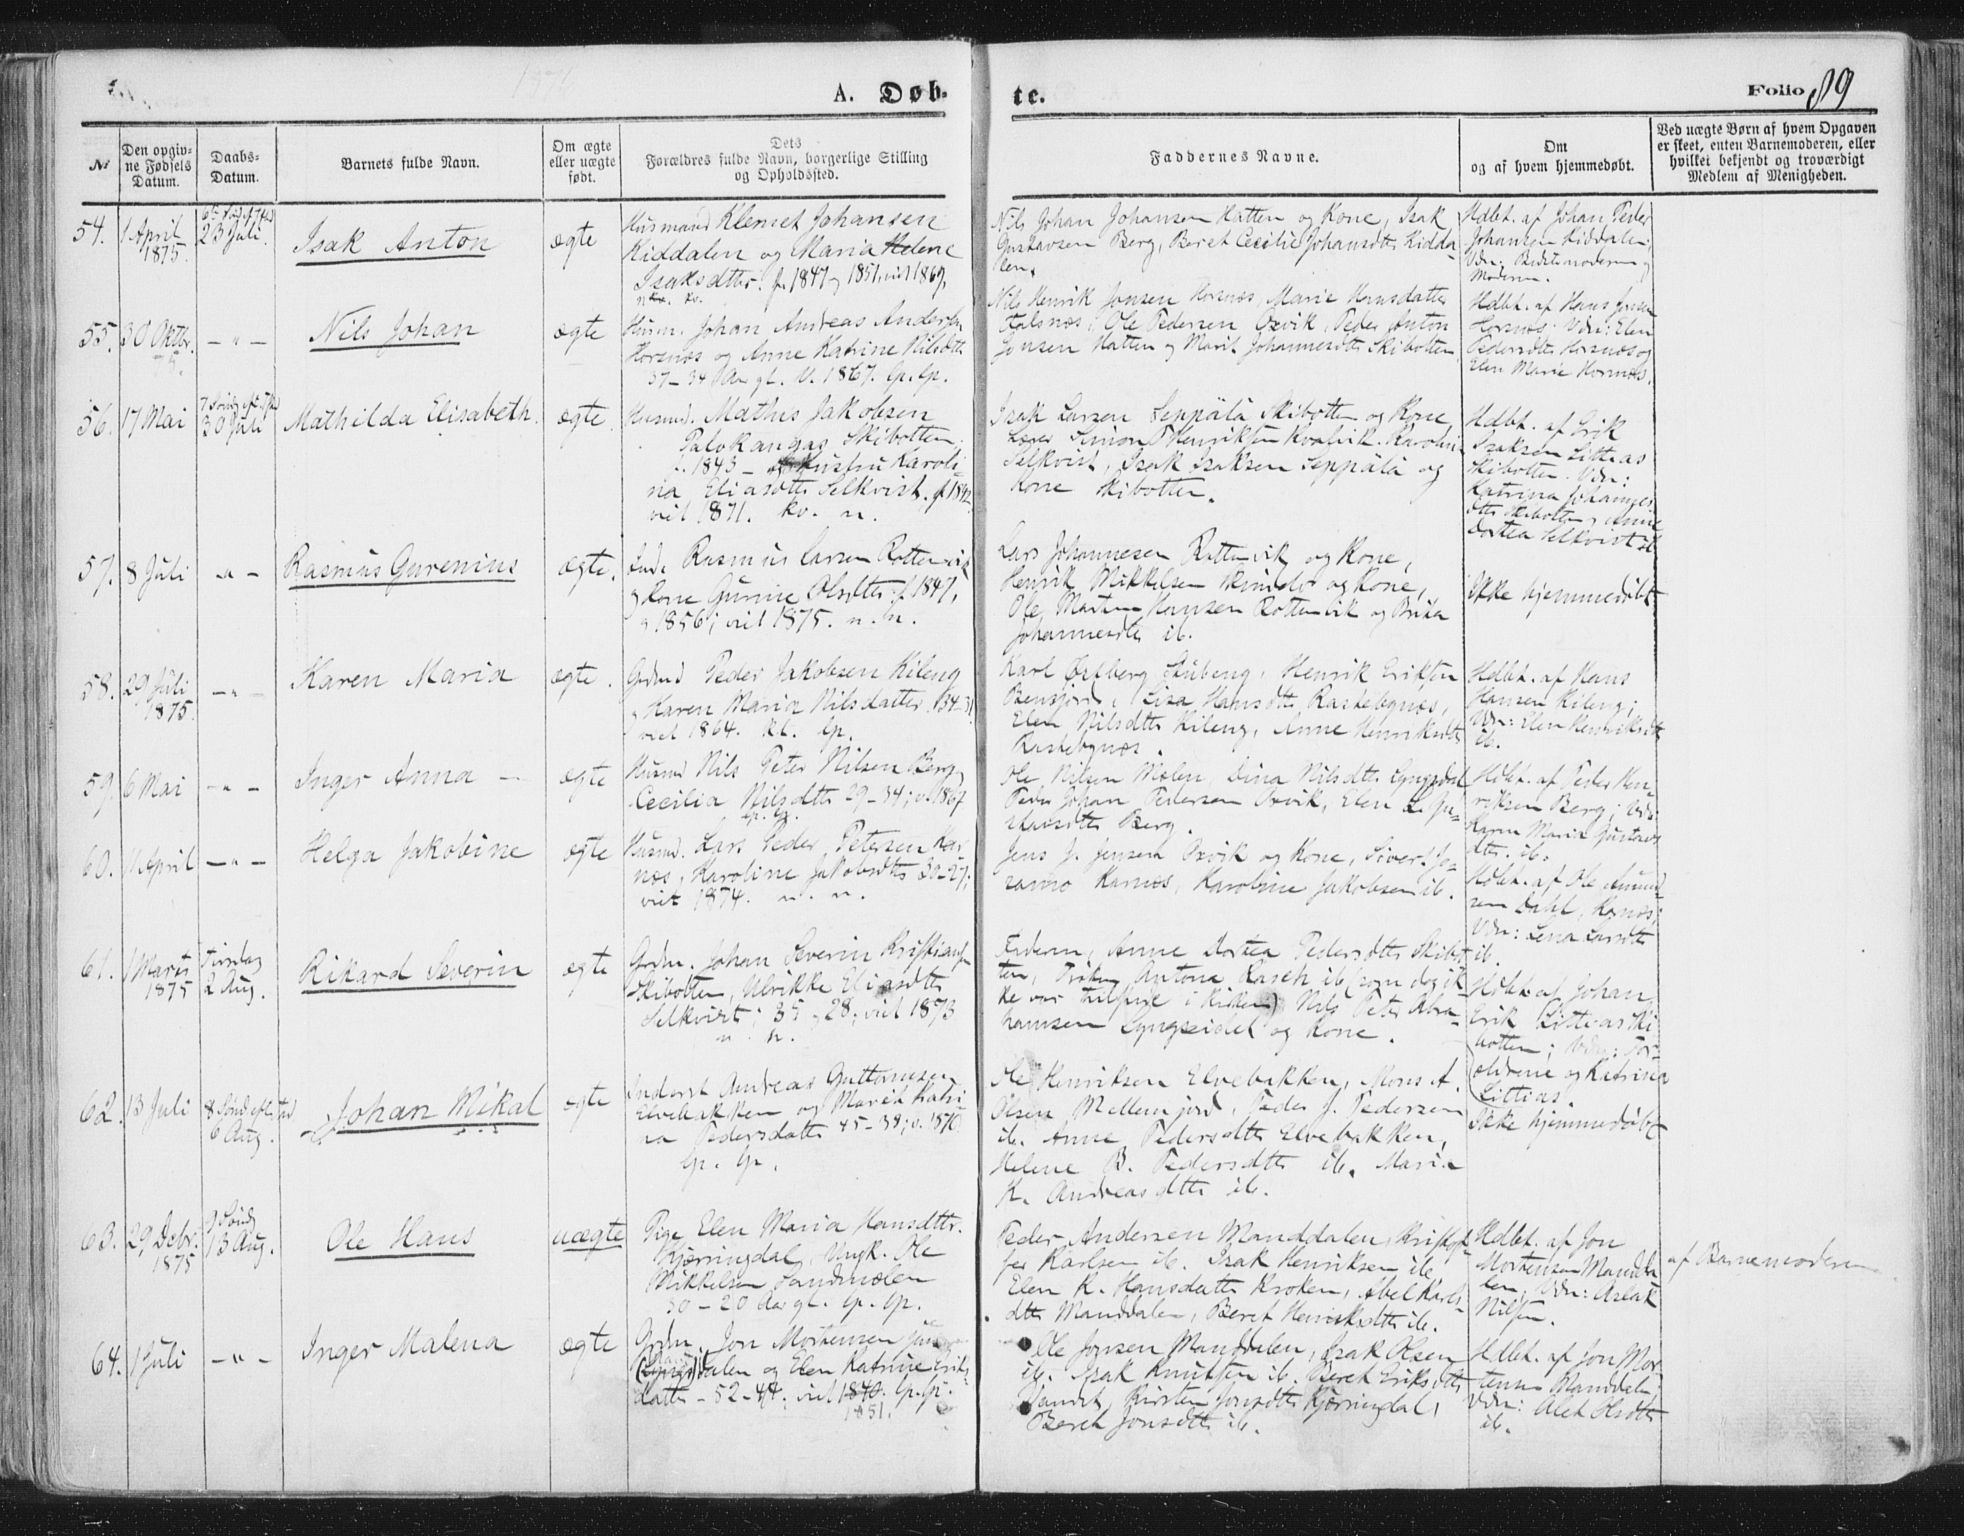 1876
A. Døb-
te.
Folio 89
Nr
Den opgiv-
ne Fødsels
Datum.
Daabs-
Datum.
Barnets fulde Navn.
Om ægte
eller uægte
født.
Dets
Forældres fulde Navn, borgerlige Stilling
og Opholdssted.
Faddernes Navne.
Om
og af hvem hjemmedøbt.
Ved uægte Børn af hvem Opgaven
er skeet, enten Barnemoderen, eller
hvilket bekjendt og troværdigt
Medlem af Menigheden.
54.
1 April
1875.
23 Juli.
Isak Anton
ægte
Husmand Klemet Johansen
Kiddalen og Maria Helene
Isaksdtter. f. 1847 og 1851, viet 1869.
n. kv.
Nils Johan Johansen Hatten og Kone, Isak
Gustavsen Berg, Beret Cecilie Johansdtter Kidda-
len.
Hdbt. af Johan Peder
Johansen Kiddalen;
Vdn: Bedstemoderen og
Moderen.
55.
30 Oktbr.
75.
— " —
Nils Johan
ægte
Husm. Johan Andreas Andersen
Horsnæs og Anne Katrine Nilsdtter
37 – 34 Aar gl. V. 1867. lp. lp.
Nils Henrik Jonsen Horsnæs, Marie Hansdatter
Falsnæs, Ole Pedersen Oxvik, Peder Anton
Jonsen Hatten og Marit Johannesdtter Skibotten
Hdbt. af Hans Jensen
Horsnæs. Vdn: Elen
Pedersdtter Horsnæs og
Elen Marie Horsnæs.
56.
17 Mai
30 Juli
Mathilda Elisabeth.
ægte.
Husmd. Mathis Jakobsen
Palokangas Skibotten.
f. 1843 – Hustru Karoli-
na Eliasdtter Selkvist, f. 1842
viet 1871. kv. n.
Isak Larsen Seppälä Skibotten og Kone,
Lærer Simon Henriksen Kvalvik. Karolin
Selkvist, Isak Isaksen Seppälä og
Kone Skibotten.
Hdbt. af Erik
Isaksen Littias
Skibotten. Vdn:
Katrina Johannes
dtter Skibotten, Anne
Dortea Selkvist ib
57.
8 Juli
— " —
Rasmus Gurenius
ægte.
Inds. Rasmus Larsen Rottenvik
og Kone Gurine Olsdtter f. 1847,
og 1856; viet 1875. n. n.
Lars Johannesen Rottenvik og Kone,
Henrik Mikkelsen Skindlo og Kone,
Ole Martin Hansen Rottenvik og Brita
Johannesdtr ib.
Ikke hjemmedøbt
58.
29 Juli
1875.
— " —
Karen Maria
ægte.
Grdmd Peder Jakobsen Kileng
og Karen Maria Nilsdatter. 34–31
viet 1864. kt. lp.
Karl Østberg Stubeng, Henrik Eriksen
Bensjord, Lisa Hansdtter Raskebgnæs,
Elen Nilsdtter Kileng, Anne Henriksdtr
Raskebgnæs.
Hdbt. af Hans
Hansen Kileng;
Vdn: Elen Henriksdtr
ib.
59.
6 Mai
— " —
Inger Anna —
ægte
Husmd Nils Peter Nilsen Berg
Cecilia Nilsdtter 29 – 34; v. 1867
lp. lp.
Ole Nilsen Molen, Dina Nilsdtter Lyngsdal
Peder Johan Pedersen Oxvik, Elen L. Gu-
stavsdtter Berg.
Hdbt. af Peder Hen-
riksen Berg; Vdn:
Karen Maria Gustavs
dtter. ib.
60.
11 April
— " —
Helga Jakobine
ægte
Husmd. Lars Peder Petersen Kar
næs, Karoline Jakobsdtter 30–27;
viet 1874. n. n.
Jens J. Jensen Oxvik og Kone, Sivert Jo-
ramo Karnæs, Karoline Jakobsen ib.
Hdbt. af Ole Amund-
sen Dahl, Karnæs;
Vdn: Lena Larsdtter
ib.
61.
1 Marts
1875
Tirsdag
2 Aug.
Rikard Severin
ægte
Grdm. Johan Severin Kristiansen
Skibotten, Ulrikke Eliasdtter
Selkvist; 35 – 28; viet 1873
n. n.
Faderen, Anne Dortea Pedersdtter Skibot-
ten, Frøken Antone Rasch ib (som dog ik-
ke var tilstede i Kirken) Nils Peter Abra-
hamsen Lyngseidet og Kone.
Hdbt. af Johan
Erik Littias Ski
botten; Vdn: For-
ældrene og Katrina
Littias.
62.
13 Juli
6 Aug.
Johan Mikal
ægte
Inderst Andreas Guttormsen
Elvebakken og Marit Katri
na Pedersdatter 45–38; v. 1870
lp. lp.
Ole Henriksen Elvebakken, Mons A.
Olsen Mellemjord, Peder J. Pedersen
ib. Anne Pedersdtter Elvebakken,
Helene B. Pedersdtter ib. Maria
K. Andreasdtter ib.
Ikke hjemmedøbt
63.
29 Debr.
1875
9 Sønd
13 Aug.
Ole Hans
uægte
Pige Elen Maria Hansdtter.
Kjerringdal, Ungk. Ole
Mikkelsen Sandmolen
30 – 20 Aar gl. lp. lp.
Peder Andersen Manddalen, Kristof-
fer Karlsen ib. Isak Henriksen ib
Elen K. Hansdatter Kroken, Abel Karls-
dtter Manddalen, Beret Henriksdtter ib.
Hdbt. af Jon
Mortensen Mandda
len, Vdn: Aslak
Nilsen.
af Barnemoderen
64.
1 Juli
— " —
Inger Malena
ægte
Grdm. Jon Mortensen
dalen og Elen Katrine Eriks
datter – 52–44; viet 1870. lp. lp.
1851.
Ole Jonsen Manddalen, Isak Olsen
ib. Isak Knutsen ib. Beret Eriksdtter
Sandet, Kirsten Jonsdtter Kjerringdal,
Beret Jonsdtter ib.
Hdbt. af Jon Mor
tensen Manddalen,
Vdn: Alet Olsdtter
ib.